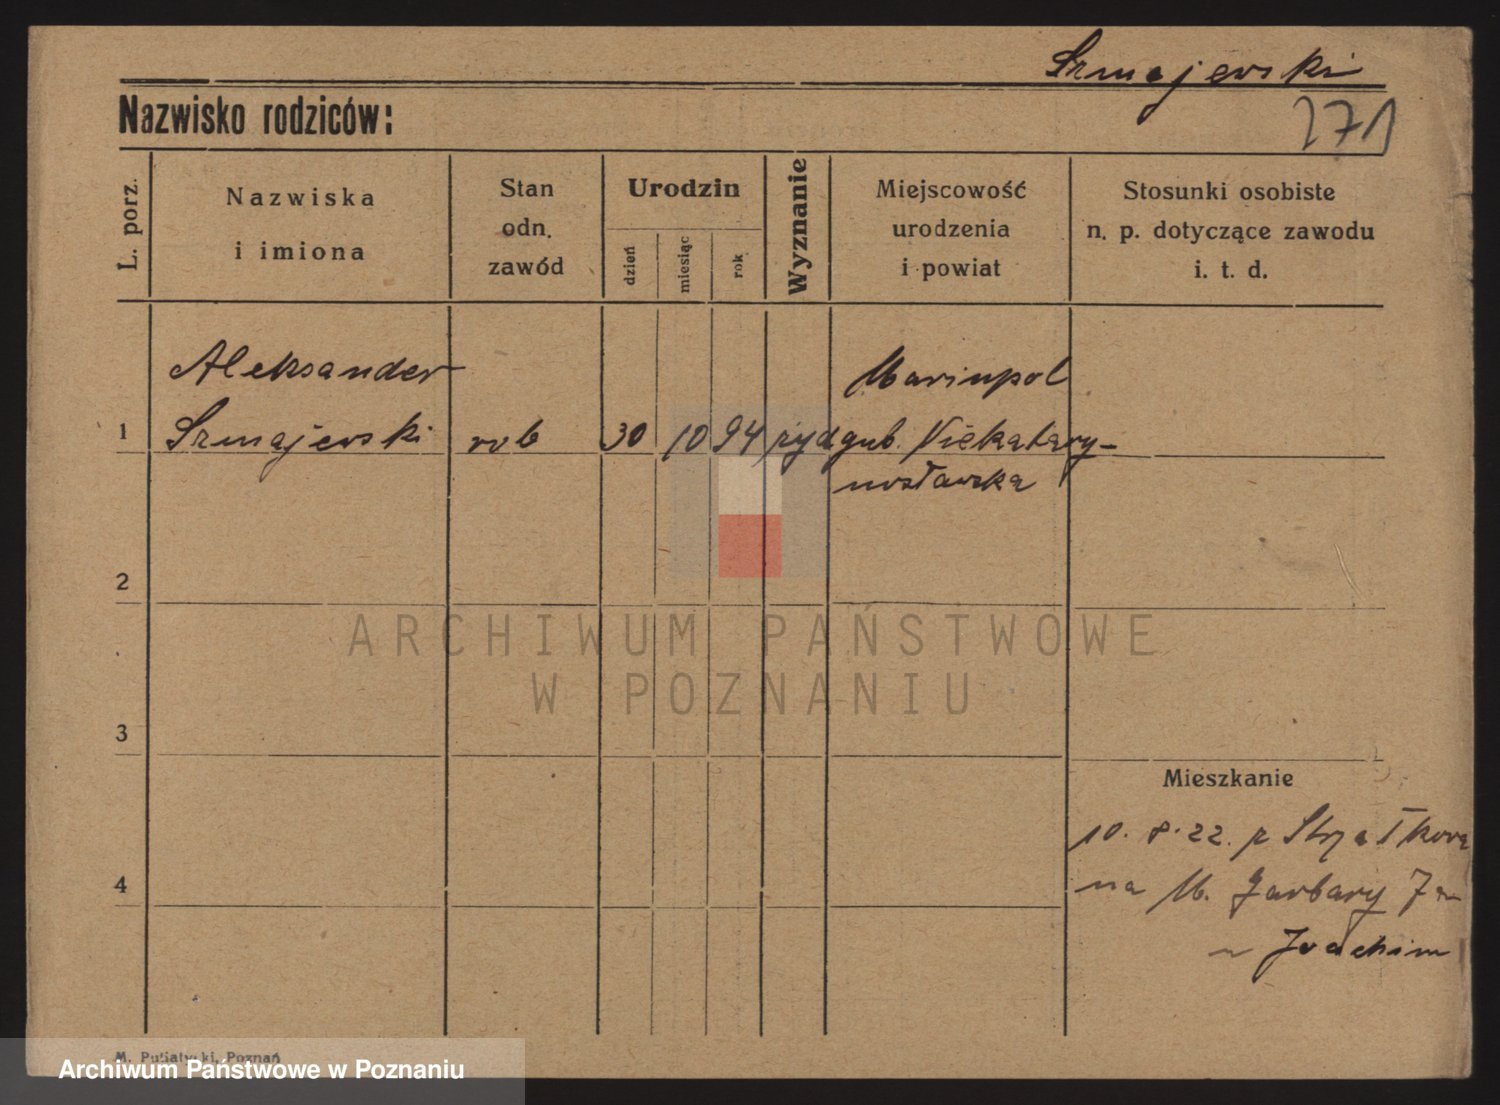 Szmajewski
Nazwisko rodziców:
271
L. porz.
Nazwiska
i imiona
Stan
odn.
zawód
Urodzin
dzień
miesiąc
rok
Wyznanie
Miejscowość
urodzenia
i powiat
Stosunki osobiste
n. p. dotyczące zawodu
i. t. d.
Aleksander
Mariupol
1 Szmajewski rob 30 10 94 żyd gub.
nosławska
2
ARCHIWUM PAŃSTWOWE
W POZNANIU
3
Mieszkanie
10. 8. 22. z Strzałkowa
4
na M. Garbary 7
Joachim
M. Putiatycki, Poznań
Archiwum Państwowe w Poznaniu